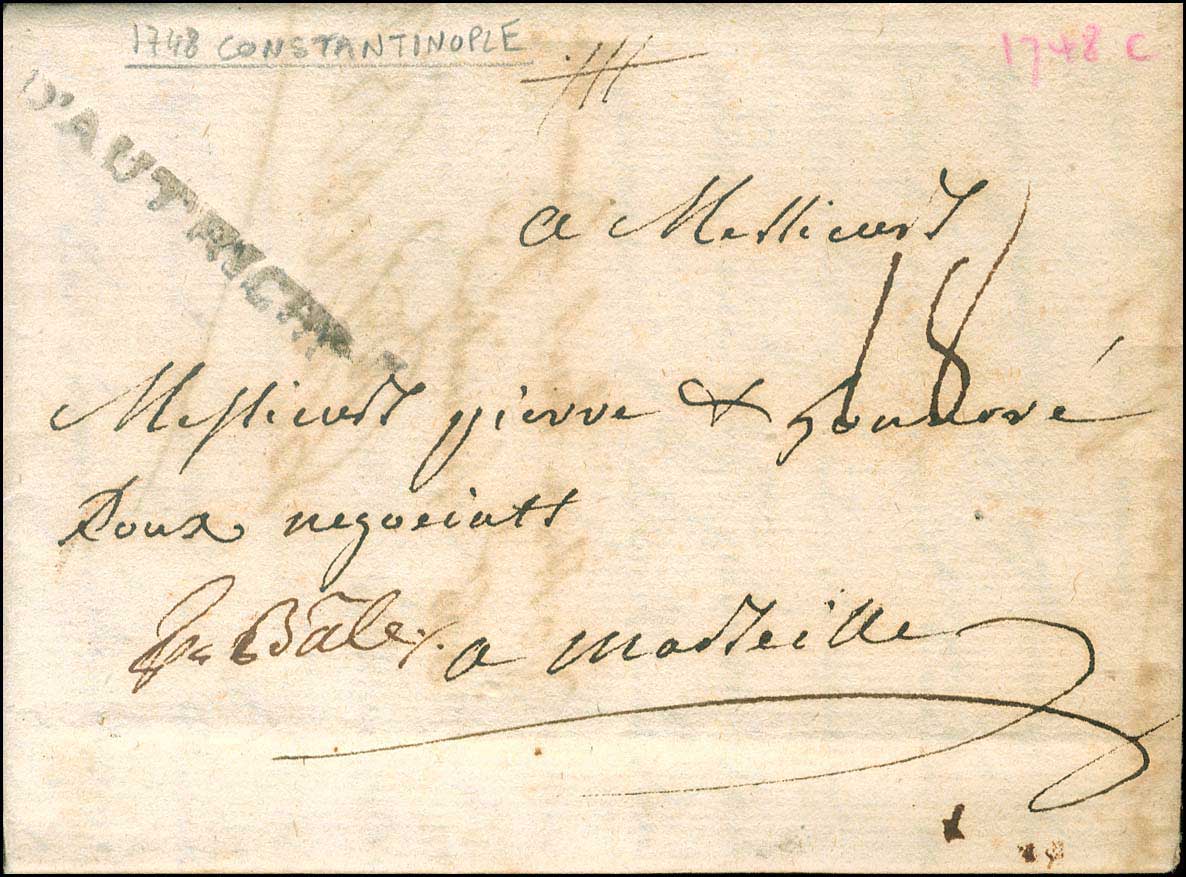 1748 CONSTANTINOPLE
1748 C
D'AUTRICHE
a Messieurs
18
Messieurs pierre & honnoré
Roux negociants
Pr Bâle
a marseille